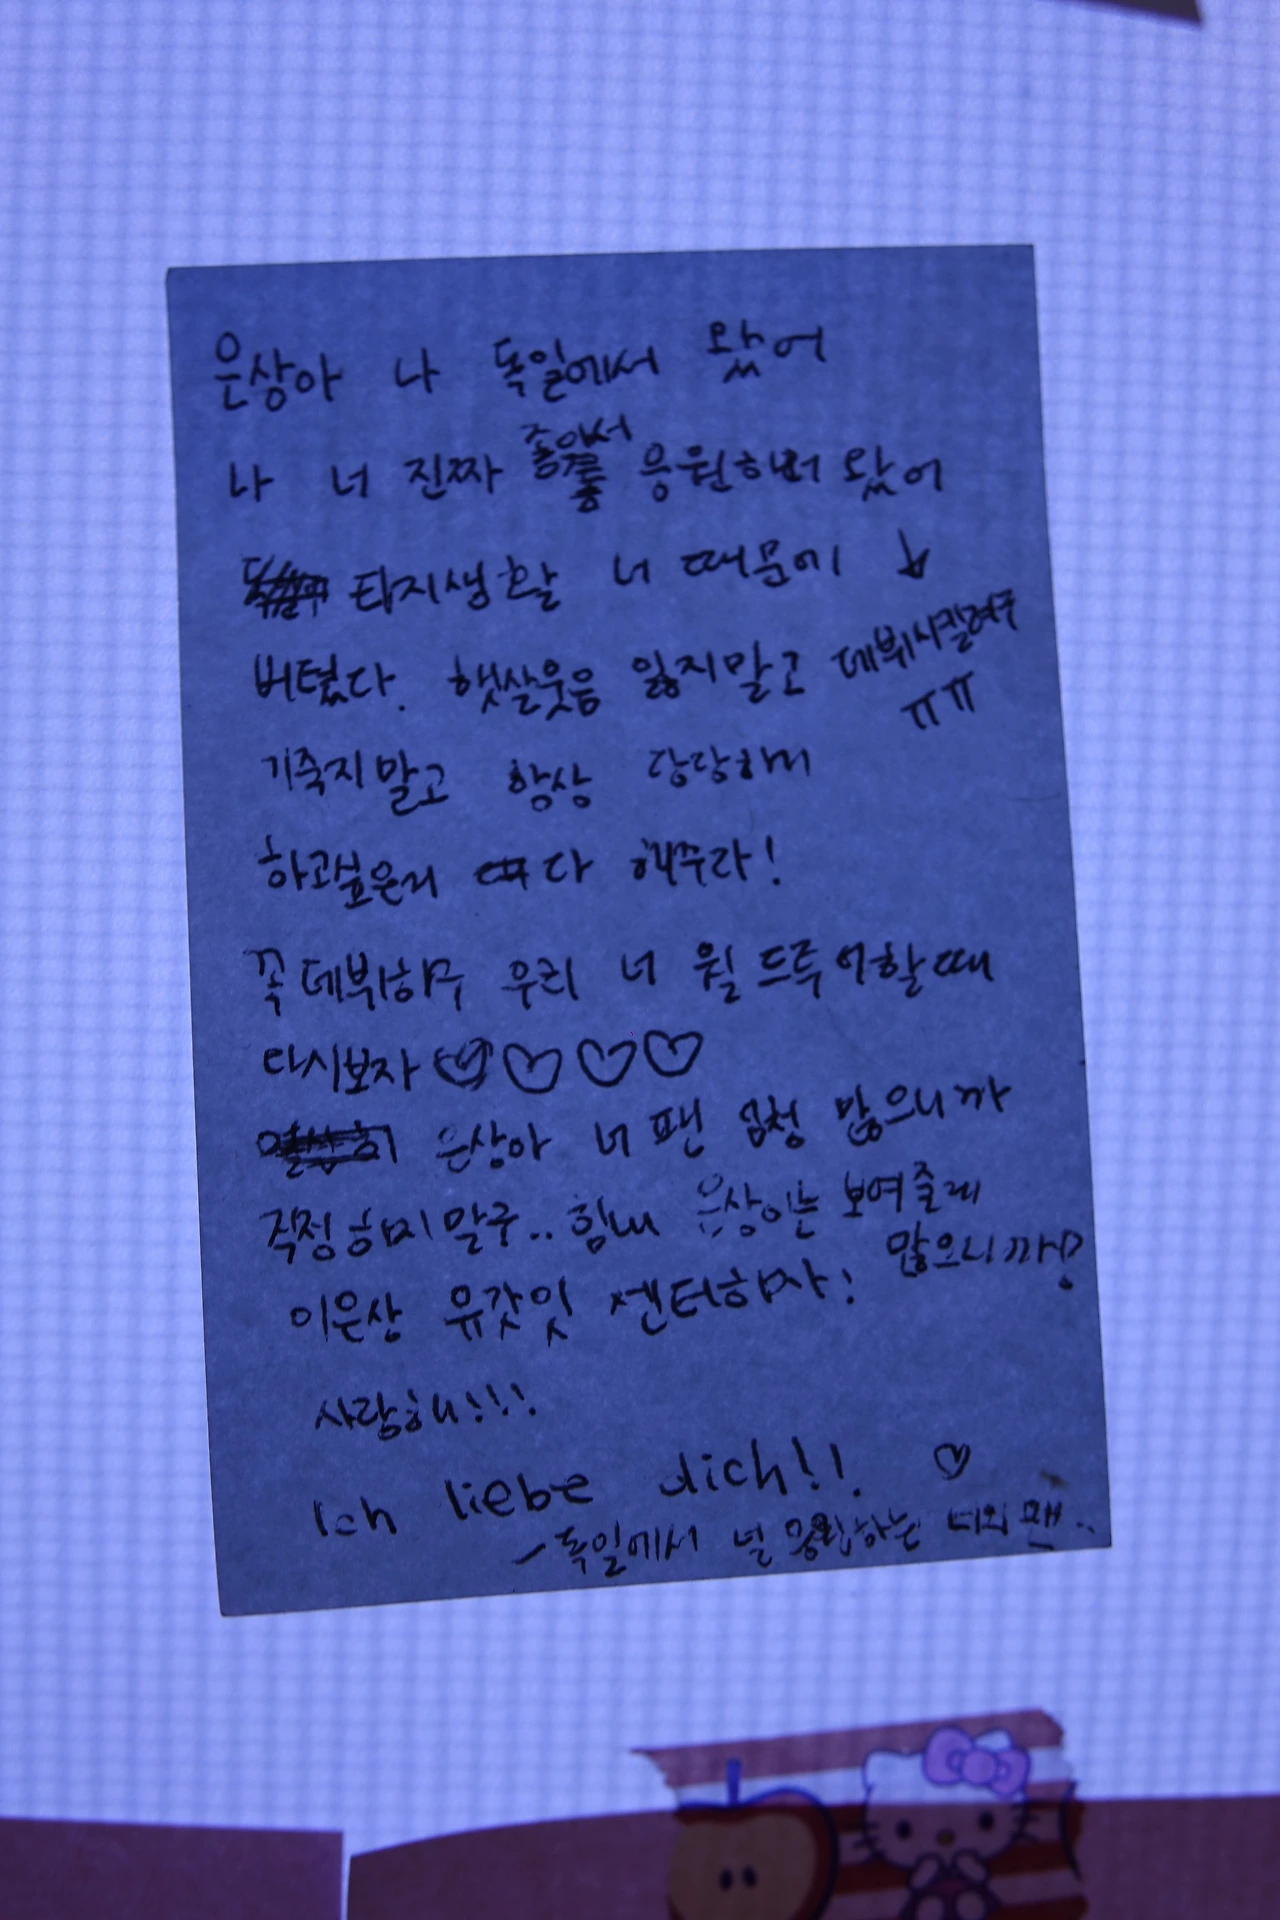 은상아 나 독일에서 왔어
나 너 진짜 좋아서 응원하러 왔어
타지생활 너 때문에
버텼다. 햇살웃음 잃지말고 데뷔시킬려구
ㅠㅠ
기죽지말고 항상 당당하게
하고싶은거 다 해주라!
꼭 데뷔하구 우리 너 월드투어할때
다시보자 ♡♡♡♡
은상아 너 팬 엄청 많으니까
걱정하지말구.. 힘내 은상이는 보여줄게
많으니까!
이은상 유갓잇 센터하자!
사랑해!!!
Ich liebe dich!! ♡
-독일에서 널 응원하는 너의 팬..